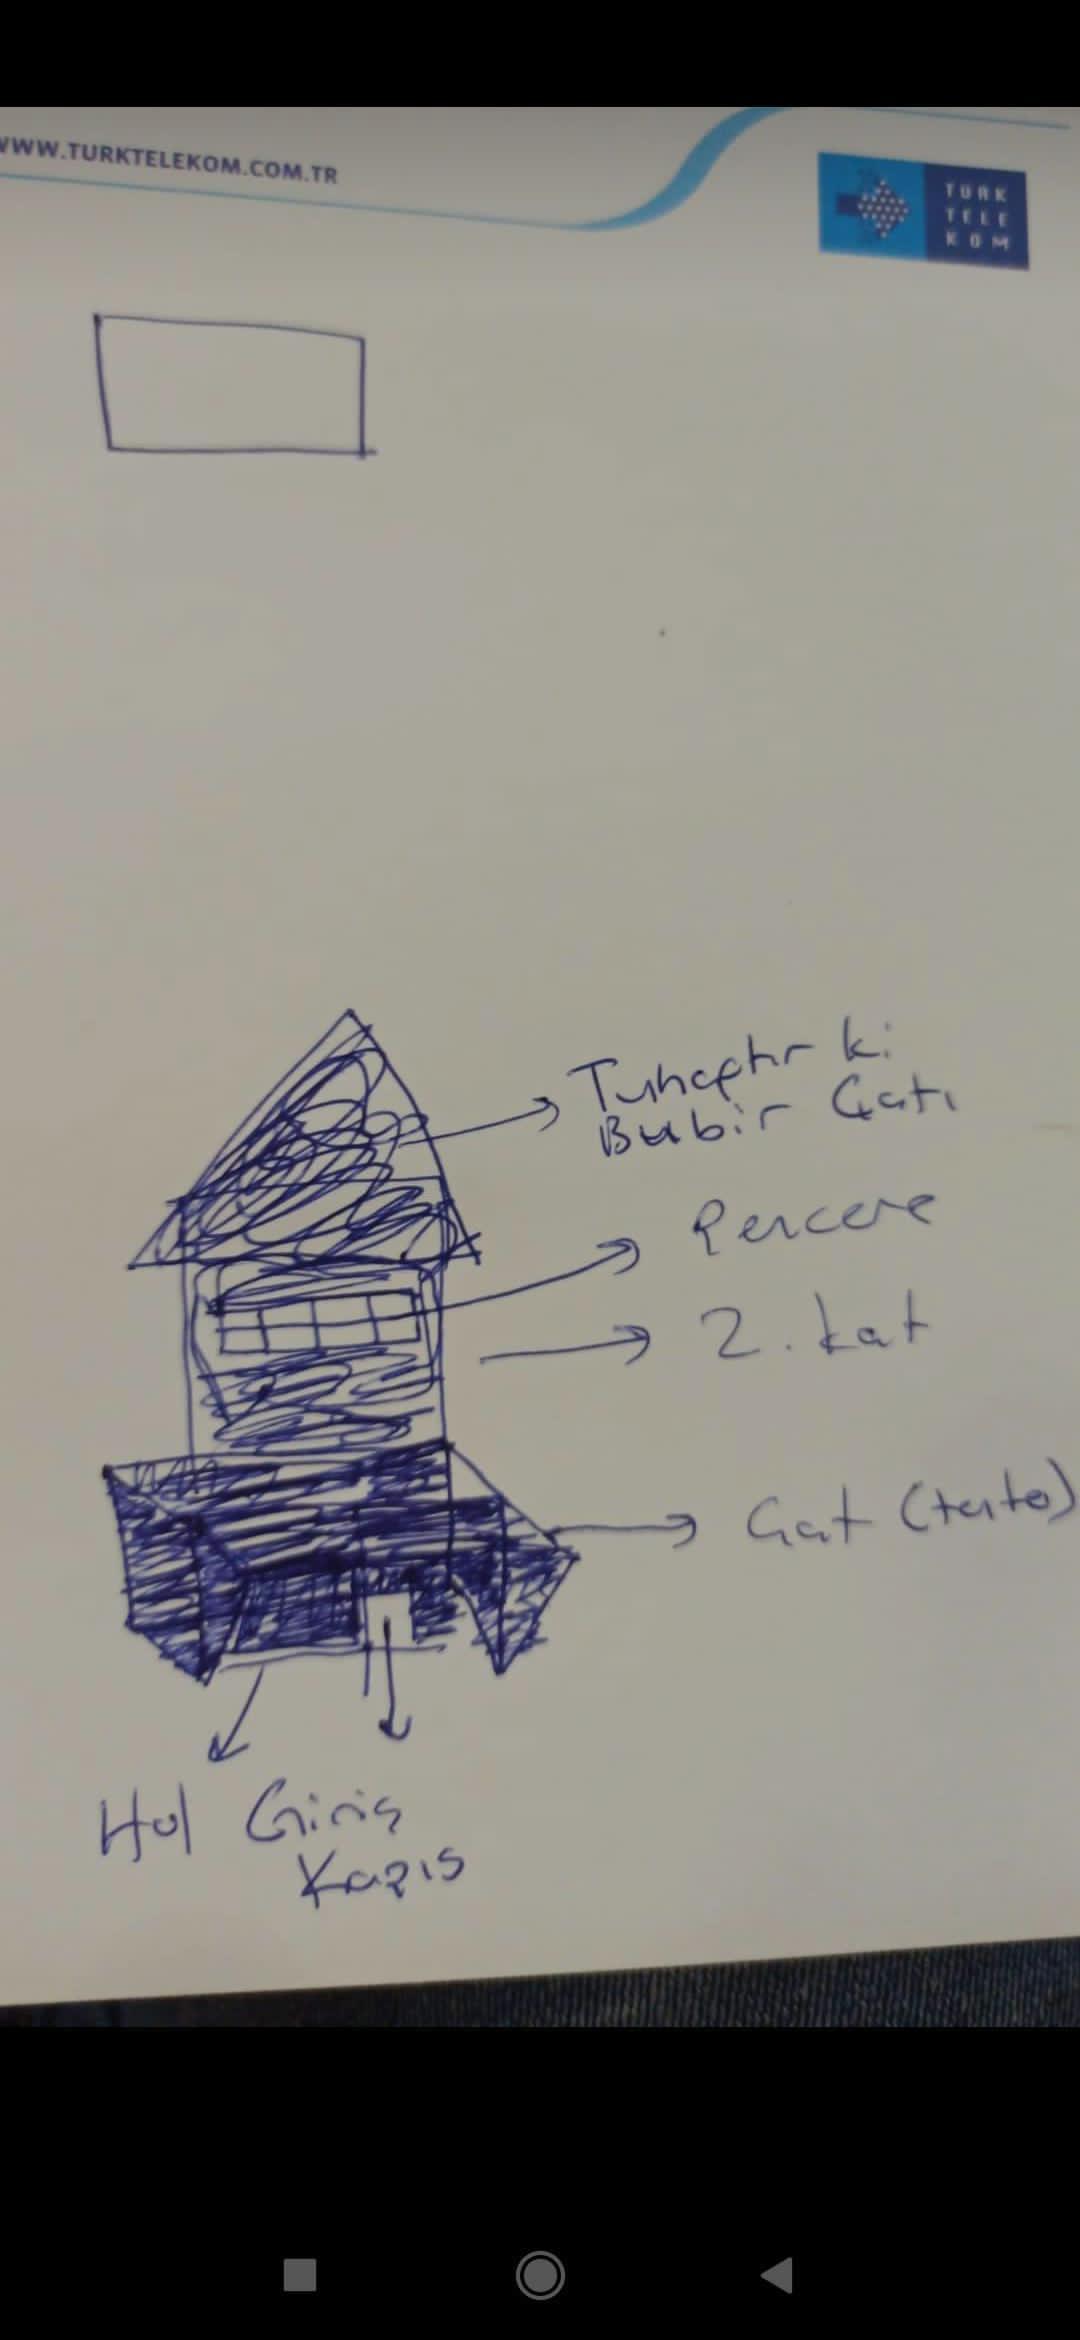 WWW.TURKTELEKOM.COM.TR
TÜRK
TELE
KOM
Tuhaftır ki
Bu bir Çatı
Pencere
2. kat
Çatı
Hol Giriş
Kapıs